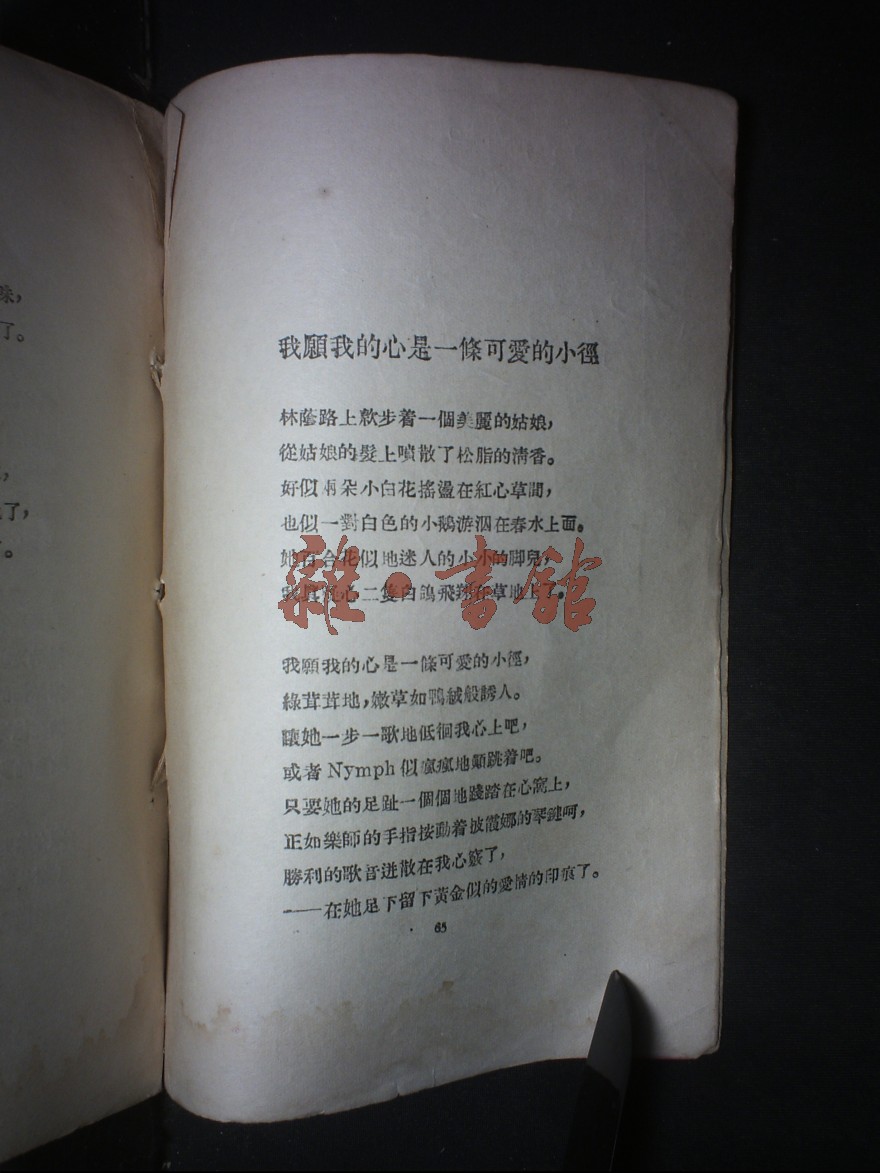 珠，
了。
，
了，
。
我願我的心是一條可愛的小徑
林蔭路上欵步着一個美麗的姑娘，
從姑娘的髮上噴散了松脂的清香。
好似兩朵小白花搖盪在紅心草間，
也似一對白色的小鵝游泅在春水上面。
她百合花似地迷人的小小的脚兒，
我眞疑心二隻白鴿飛翔在草地上了。
我願我的心是一條可愛的小徑，
綠茸茸地，嫩草如鴨絨般誘人。
讓她一步一歌地低徊我心上吧，
或者 Nymph 似瘋瘋地顛跳着吧。
只要她的足趾一個個地踐踏在心窩上，
正如樂師的手指按動着披霞娜的琴鍵呵，
勝利的歌音迸散在我心竅了，
——在她足下留下黃金似的愛情的印痕了。
65
雜·書館